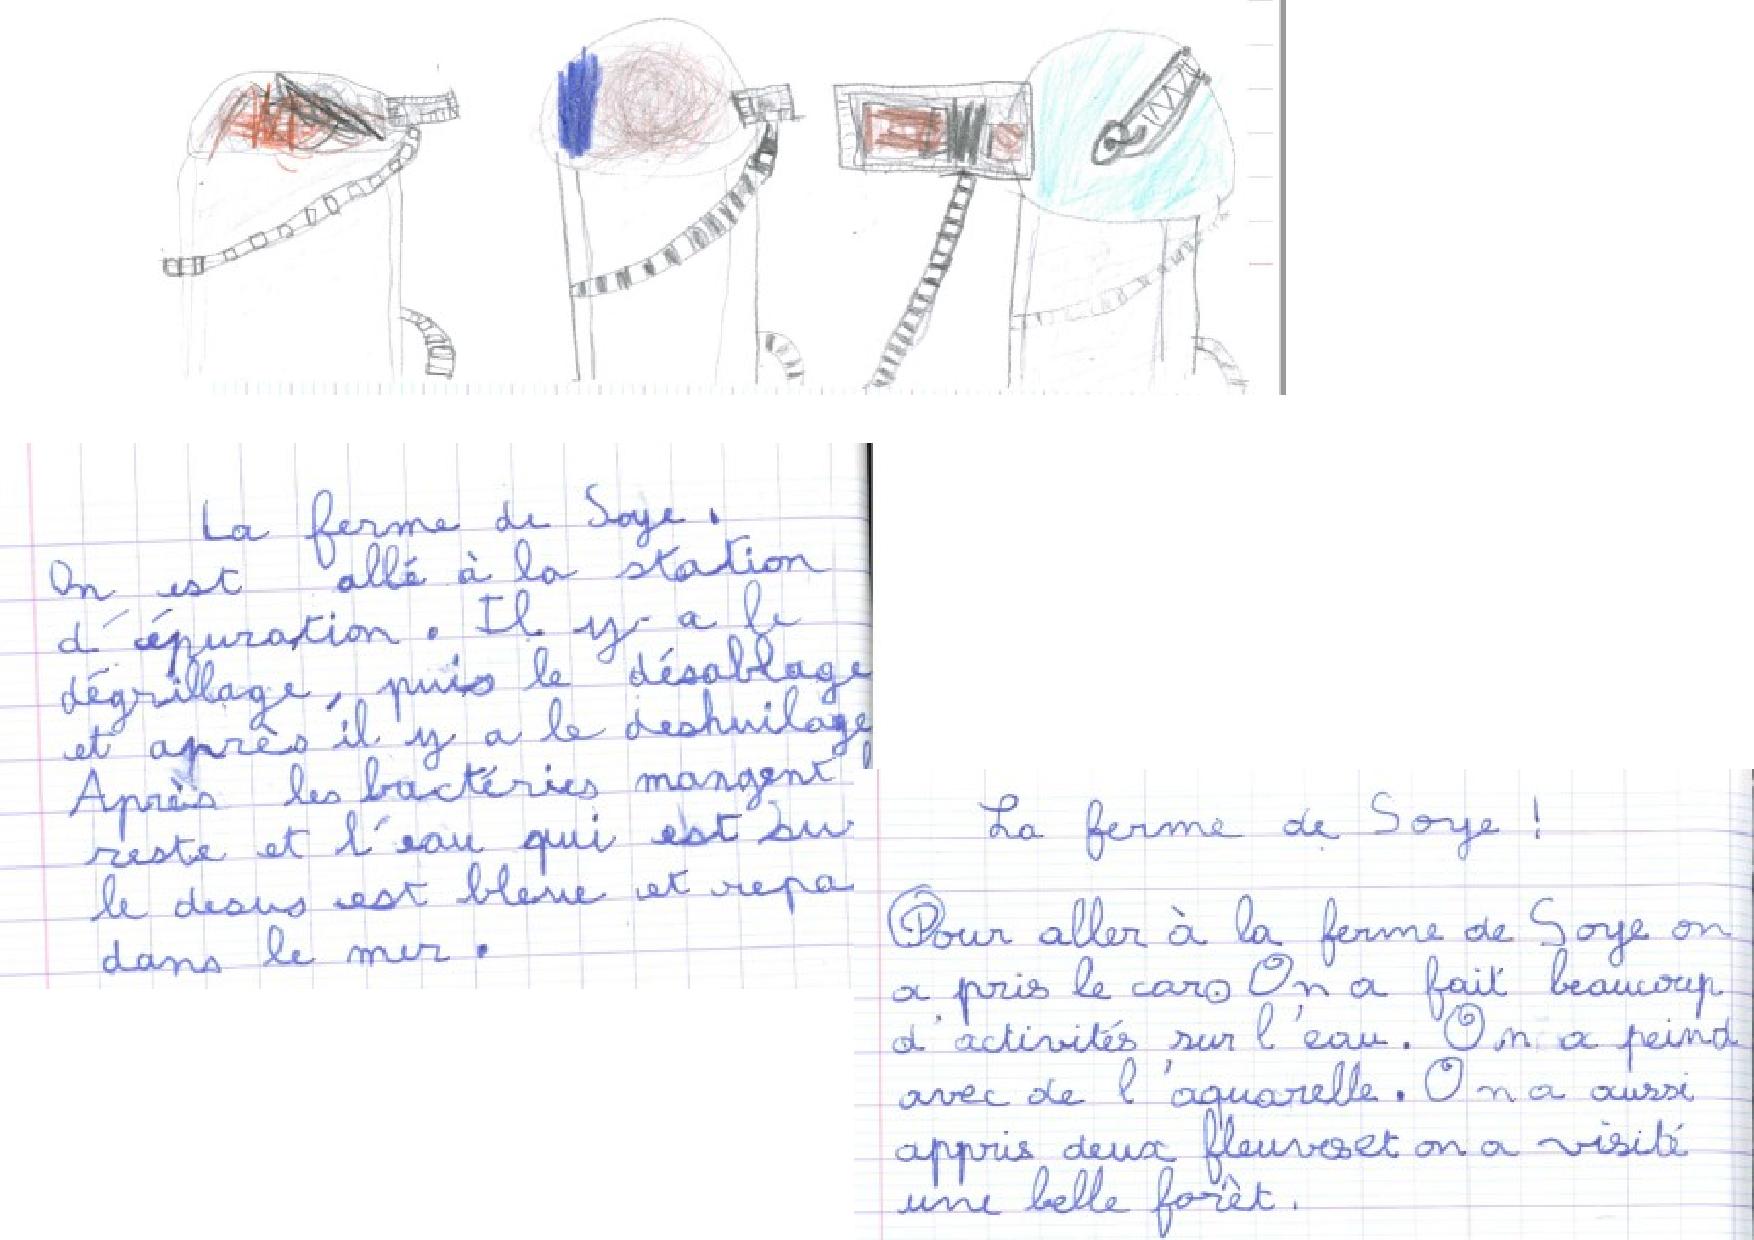 La ferme de Soye.
On est allé à la station
d'épuration. Il y a le
dégrillage, puis le désablage
et après il y a le deshuilage
Après les bactéries mangent
reste et l'eau qui est su
le desus est bleue et repa
dans le mer.
La ferme de Soye !
Pour aller à la ferme de Soye on
a pris le car. On a fait beaucoup
d'activités sur l'eau. On a peind
avec de l'aquarelle. On a aussi
appris deux fleuves et on a visité
une belle forêt.